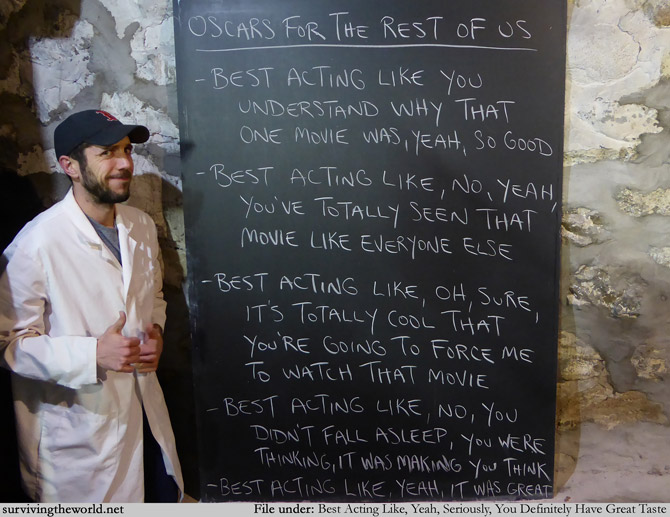 OSCARS FOR THE REST OF US
- BEST ACTING LIKE YOU
UNDERSTAND WHY THAT
ONE MOVIE WAS, YEAH, SO GOOD
- BEST ACTING LIKE, NO, YEAH,
YOU'VE TOTALLY SEEN THAT
MOVIE LIKE EVERYONE ELSE
- BEST ACTING LIKE, OH, SURE,
IT'S TOTALLY COOL THAT
YOU'RE GOING TO FORCE ME
TO WATCH THAT MOVIE
- BEST ACTING LIKE, NO, YOU
DIDN'T FALL ASLEEP, YOU WERE
THINKING, IT WAS MAKING YOU THINK
- BEST ACTING LIKE, YEAH, IT WAS GREAT
survivingtheworld.net
File under: Best Acting Like, Yeah, Seriously, You Definitely Have Great Taste